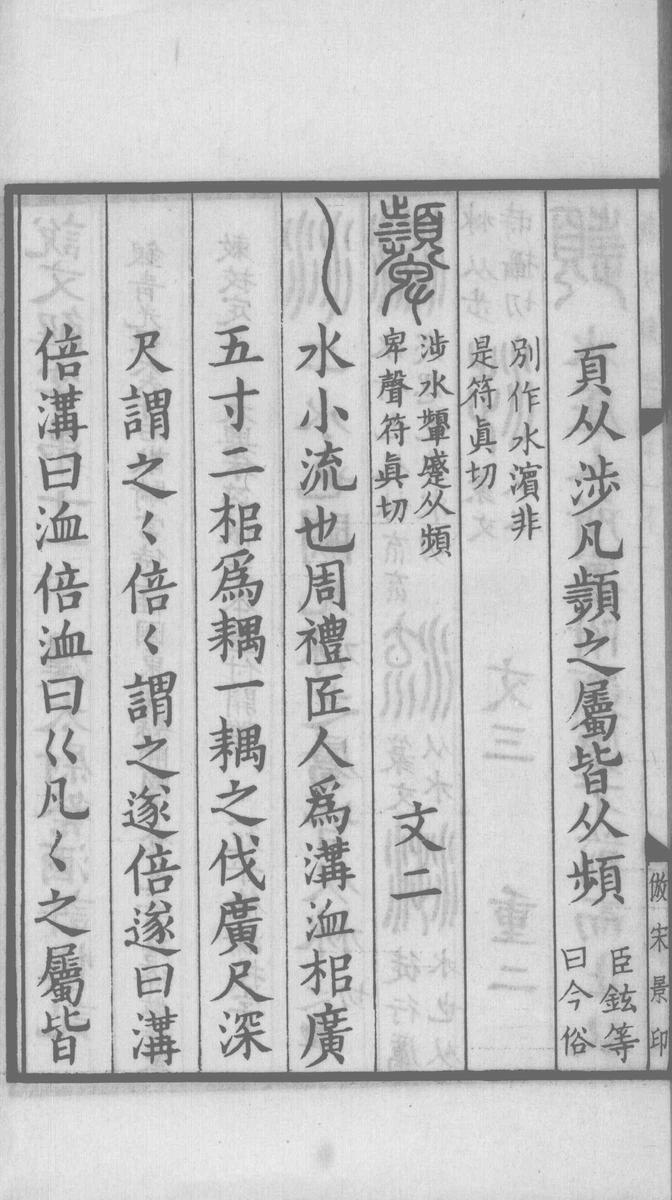 頁从涉凡瀕之屬皆从頻臣鉉等
曰今俗
別作水濱非
是符眞切
顰涉水顰蹙从頻
卑聲符眞切
文二
𡿨水小流也周禮匠人爲溝洫枱廣
五寸二枱爲耦一耦之伐廣尺深
尺謂之𡿨倍𡿨謂之遂倍遂曰溝
倍溝曰洫倍洫曰巜凡𡿨之屬皆
倣宋景印